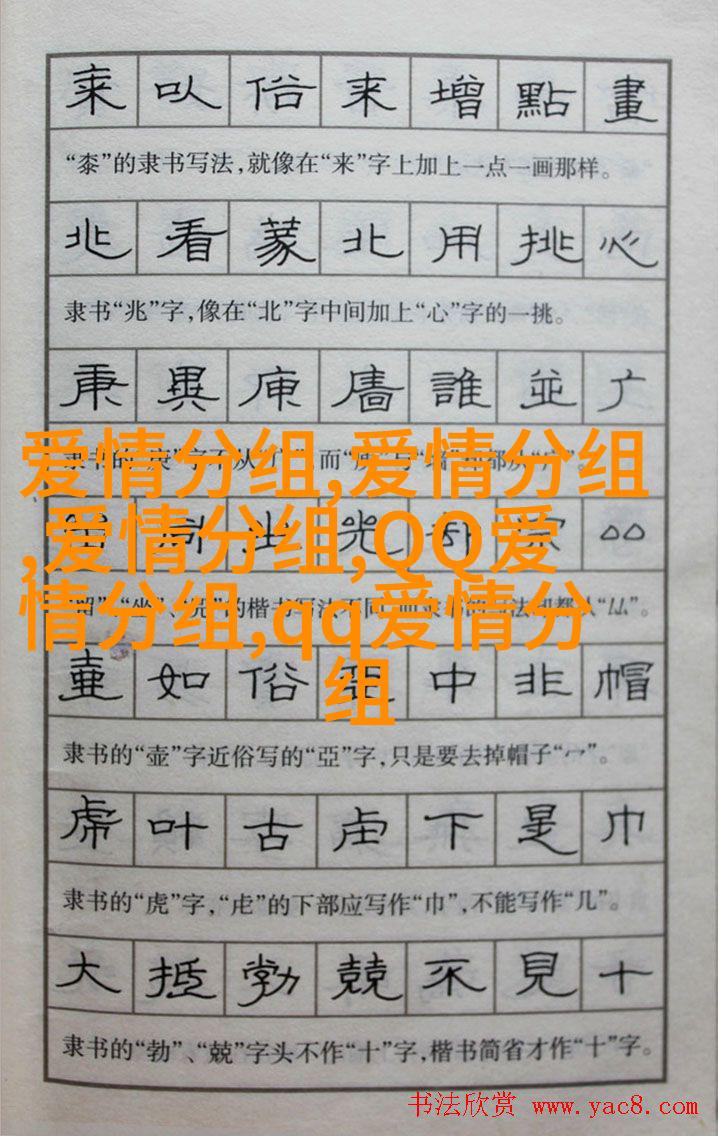 来叺俗来增點畫
“桼”的隶书写法,就像在“来”字上加上一点一画那样。
兆看篆北用挑心
隶书“兆”字,像在“北”字中间加上“心”字的一挑。
庚異庳廧誰並广
爱情分组,爱情分组
,爱情分组,QQ爱
情分组,qq爱情分
组
壶如俗亞中非帽
隶书的“壶”字近俗写的“亞”字,只是要去掉帽子“冖”。
虎叶古虍下是巾
隶书的“虎”字,“虍”的下部应写作“巾”,不能写作“几”。
大抵勃兢不見十
隶书的“勃”、“兢”字头不作“十”字,楷书简省才作“十”字。
书法欣赏 www.yac8.com